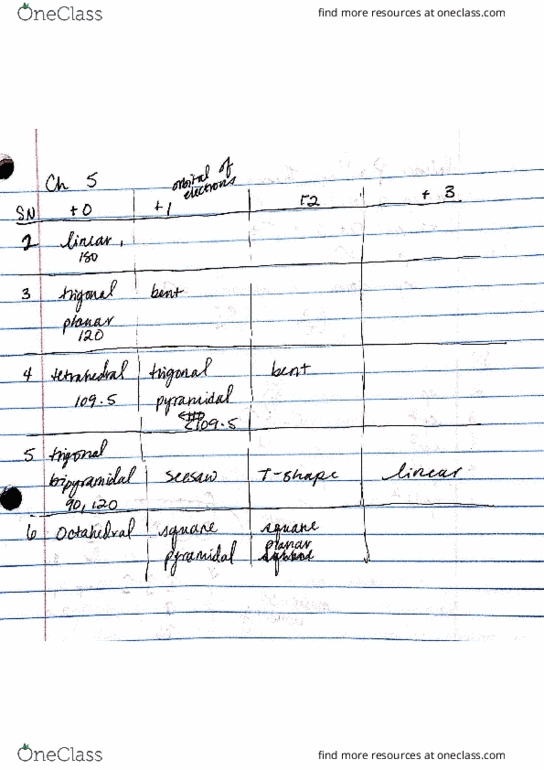 OneClass
find more resources at oneclass.com
Ch 5
orbital of
electrons
SN +0 +1 +2 + 3
2 linear
180
3 trigonal bent
planar
120
4 tetrahedral trigonal bent
109.5 pyramidal
<109.5
5 trigonal
bipyramidal seesaw T-shape linear
90, 120
6 Octahedral square square
pyramidal planar
OneClass
find more resources at oneclass.com